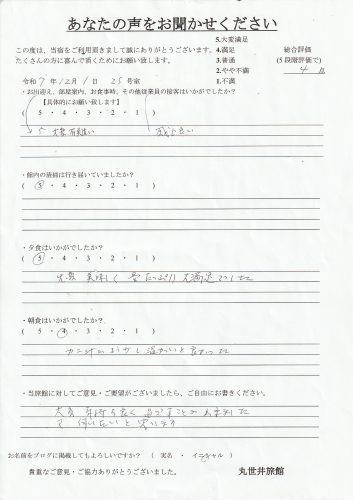 あなたの声をお聞かせください
この度は、当宿をご利用頂きまして誠にありがとうございます。
たくさんの方に喜んで頂くためにお願い致します。
5.大変満足
4.満足
3.普通
2.やや不満
1.不満
総合評価
(5段階評価で)
4 点
令和7年12月1日 25号室
・お出迎え、部屋案内、お食事時、その他従業員の接客はいかがでしたか?
【具体的にお願い致します】
( 5 ・ 4 ・ 3 ・ 2 ・ 1 )
大変
・館内の清掃は行き届いていましたか?
( 5 ・ 4 ・ 3 ・ 2 ・ 1 )
・夕食はいかがでしたか?
( 5 ・ 4 ・ 3 ・ 2 ・ 1 )
大変 美味しく 量たっぷり 大満足でした
・朝食はいかがでしたか?
( 5 ・ 4 ・ 3 ・ 2 ・ 1 )
カニ汁がもう少し温かいと良かった
・当旅館に対してご意見・ご要望がございましたら、ご自由にお書きください。
大変 気持ち良く 過ごすことが出来ました
又 伺いたいと思います
お名前をブログに掲載してもよろしいですか? ( 実名 ・ イニシャル )
貴重なご意見・ご協力ありがとうございました。
丸世井旅館